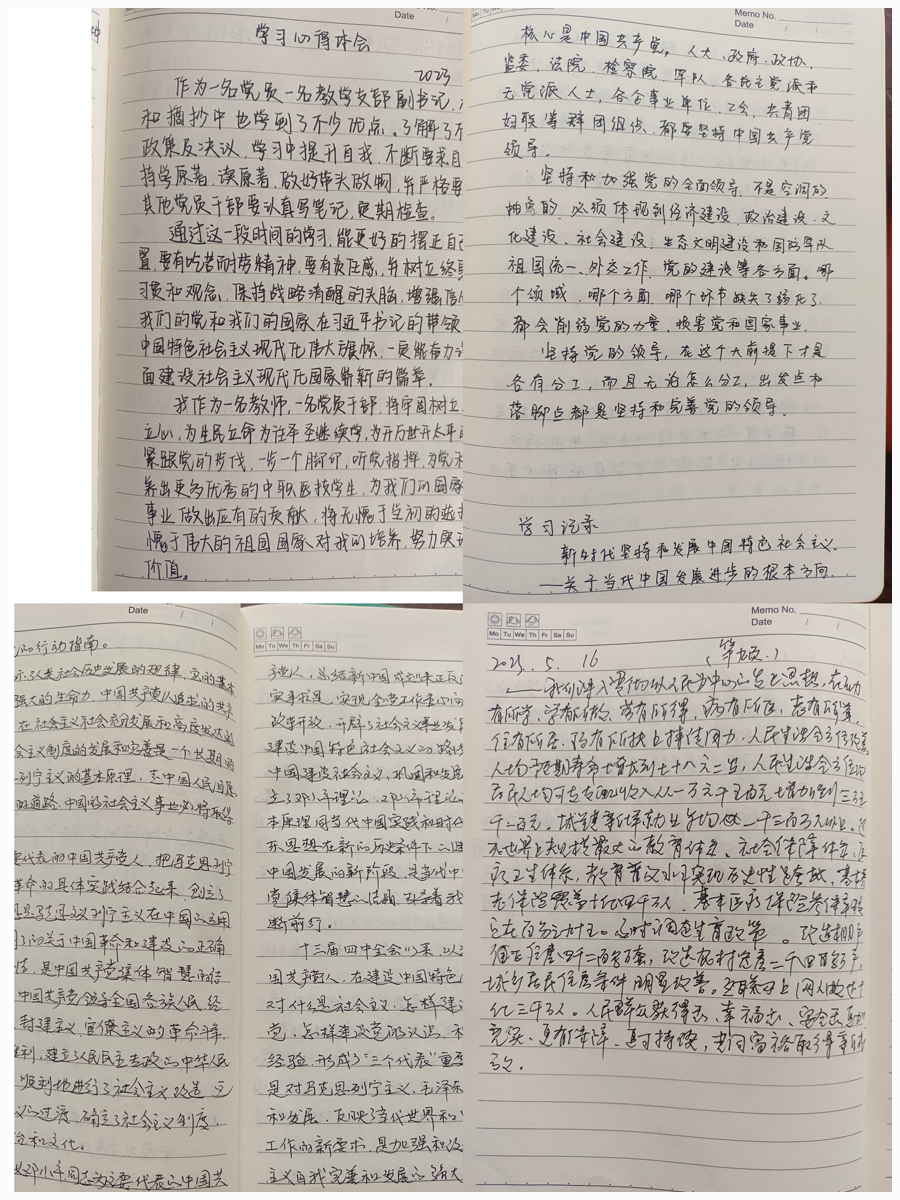 Date
学习心得体会
2023
作为一名党员一名教学支部副书记,
和摘抄中也学到了不少优点。了解了不
政策及决议,学习中提升自我,不断要求自
持学原著,读原著,做好带头做用,并严格要
其他党员干部要认真写笔记,定期检查。
通过这一段时间的学习,能更好的摆正自己
置,要有吃苦而劳精神,要有责任感,并树立终身
习惯和观念,保持战略清醒的头脑,增强信
我们的党和我们的国家在习近平书记的带领
中国特色社会主义现代化伟大旗帜,一定能奋力
面建设社会主义现代化国家崭新的篇章。
我作为一名教师,一名党员干部,将牢固树立
立心,为生民立命为往圣继续学,为开万世开太平
紧跟党的步伐,一步一个脚印,听党指挥,为党
养出更多优秀的中职医技学生,为我们的国家
事业做出应有的贡献,将无愧于当初的选
愧于伟大的祖国国家对我的培养,努力
价值。
Memo No.
Date
核心是中国共产党。人大、政府、政协,
监委、法院、检察院、军队、各民主党派和
无党派人士,各企事业单位、工会、共青团
妇联等群团组织,都要坚持中国共产党
领导。
坚持和加强党的全面领导,不是空洞的
抽象的,必须体现到经济建设、政治建设、文
化建设、社会建设、生态文明建设和国防军队
祖国统一、外交工作、党的建设等各方面。哪
个领域,哪个方面,哪个环节缺失了弱化了,
都会削弱党的力量,损害党和国家事业。
坚持党的领导,在这个大前提下才是
各有分工,而且无论怎么分工,出发点和
落脚点都是坚持和完善党的领导。
学习记录
新时代坚持和发展中国特色社会主义
——关于当代中国发展进步的根本方向
Date
的行动指南。
示人类社会历史发展的规律,它的基本
强大的生命力。中国共产党人追求的共产
在社会主义社会充分发展和高度发达的
会主义制度的发展和完善是一个长期的
列宁主义的基本原理,走中国人民自愿
的道路,中国的社会主义事业必将取得
代表的中国共产党人,把马克思列宁
革命的具体实践结合起来,创立了
思是马克思主义列宁主义在中国的运用
了的关于中国革命和建设的正确
,是中国共产党集体智慧的结
中国共产党领导全国各族人民,经
封建主义、官僚主义的革命斗争,
胜利,建立人民民主专政的中华人民
顺利地进行了社会主义改造,完
义的过渡,确立了社会主义制度,
和文化。
邓小平同志为主要代表的中国共
Mo Tu We Th Fr Sa Su
产党人,总结新中国成立以来正反
实事求是,实现全党工作重心向
改革开放,开辟了社会主义事业发展
建设中国特色社会主义的路线
中国建设社会主义,巩固和发展
立了邓小平理论,邓小平理论
本原理同当代中国实践和时代
东思想在新的历史条件下的继
中国发展的新阶段,是当代中
党集体智慧的结晶,引导着我
断前行。
十三届四中全会以来,以江
国共产党人,在建设中国特色
对什么是社会主义,怎样建
党,怎样建设党的认识,
经验,形成了“三个代表”重要
是对马克思列宁主义,毛泽东
和发展,反映了当代世界和
工作的新要求,是加强和改
主义自我完善和发展的强大
Memo No.
Date
Mo Tu We Th Fr Sa Su
2023. 5. 16
——我们深入贯彻以人民为中心的发展思想,在幼
有所育、学有所教、劳有所得、病有所医、老有所养、
住有所居、弱有所扶上持续用力,人民生活全方位改善。
人均预期寿命增长到七十八点二岁,
居民人均可支配收入从一万六千五百元增加到三万五
千一百元。城镇新增就业年均一千三百万人以上。
世界上规模最大的教育体系、社会保障体系、
卫生体系,教育普及水平实现历史性跨越,基本
老保险覆盖十亿四千万人,基本医疗保险参保率稳
定在百分之九十五。及时调整生育政策。改造棚户
区住房四千二百多万套,改造农村危房二千四百多万户,
城乡居民住房条件明显改善。互联网上网人数达十
亿三千万人。人民群众获得感、幸福感、安全感更加
充实、更有保障、更可持续,共同富裕取得新